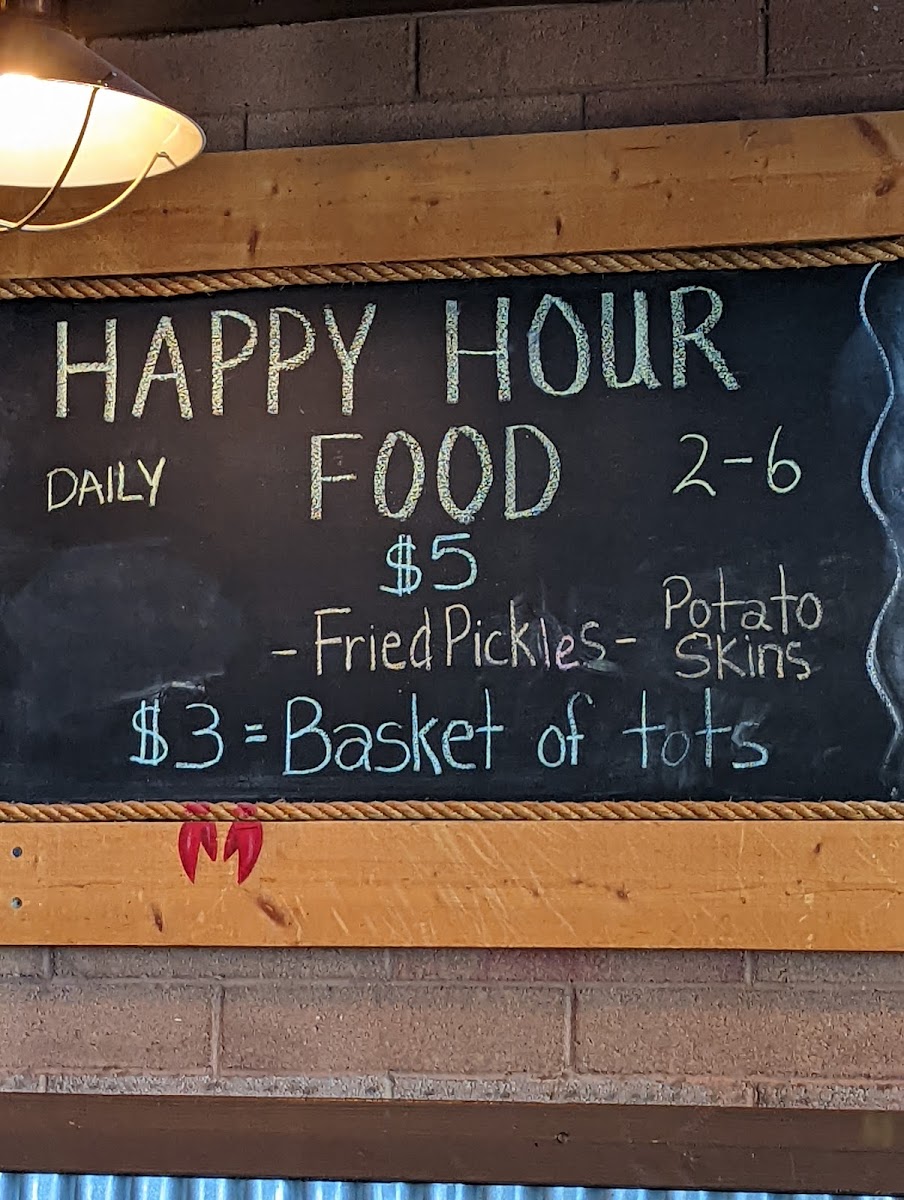 HAPPY HOUR
DAILY FOOD 2-6
$5
- Fried Pickles - Potato Skins
$3 = Basket of tots